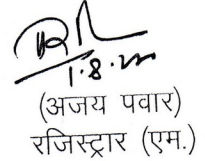 1.8.
(अजय पवार)
रजिस्ट्रार (एम.)